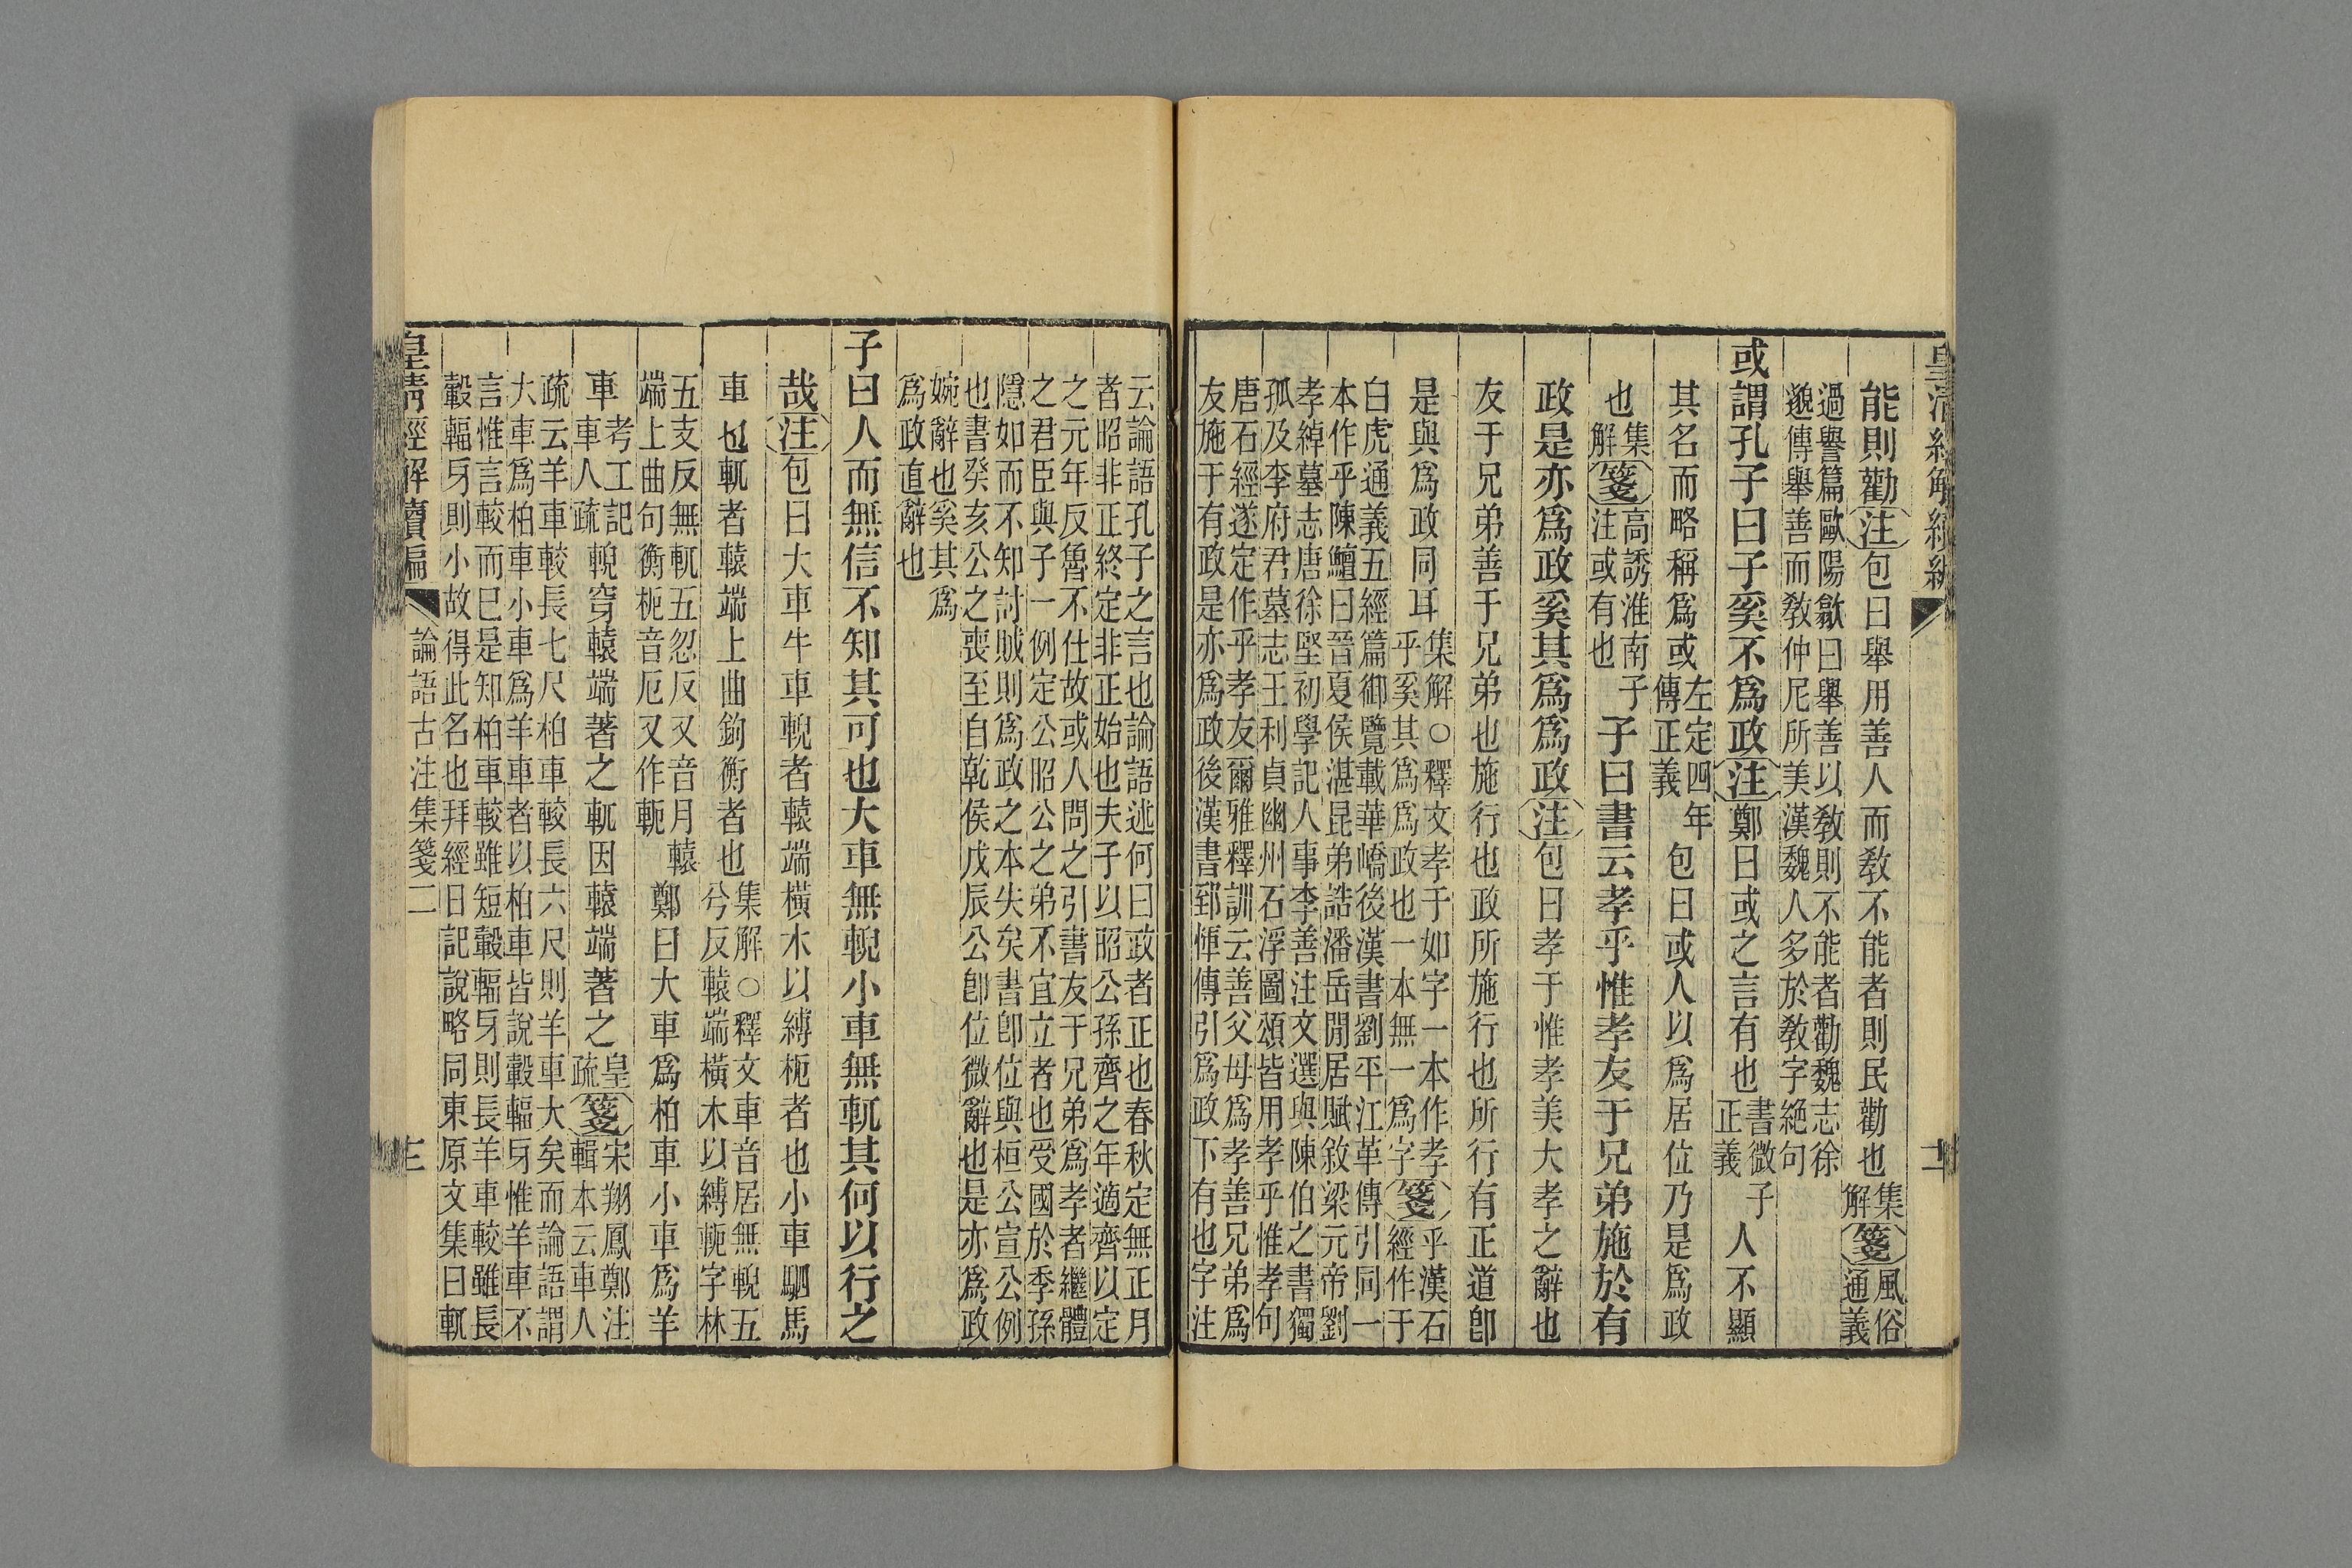 皇清經解續編
二
能則勸注包曰舉用善人而敎不能者則民勸也集解箋風俗通義
過譽篇歐陽歙曰舉善以敎則不能者勸魏志徐
邈傳舉善而敎仲尼所美漢魏人多於敎字絕句
或謂孔子曰子奚不爲政注鄭曰或之言有也書微子正義人不顯
其名而略稱爲或左定四年傳正義包曰或人以爲居位乃是爲政
也集解箋高誘淮南子注或有也子曰書云孝乎惟孝友于兄弟施於有
政是亦爲政奚其爲爲政注包曰孝于惟孝美大孝之辭也
友于兄弟善于兄弟也施行也政所施行也所行有正道卽
是與爲政同耳集解○釋文孝于如字一本作孝乎奚其爲爲政也一本無一爲字箋乎漢石經作于
白虎通義五經篇御覽載華嶠後漢書劉平江革傳引同一
本作乎陳鱣曰晉夏侯湛昆弟誥潘岳閒居賦敘梁元帝劉
孝綽墓志唐徐堅初學記人事李善注文選與陳伯之書獨
孤及李府君墓志王利貞幽州石浮圖頌皆用孝乎惟孝句
唐石經遂定作乎孝友爾雅釋訓云善父母爲孝善兄弟爲
友施于有政是亦爲政後漢書郅惲傳引爲政下有也字注
云論語孔子之言也論語述何曰政者正也春秋定無正月
者昭非正終定非正始也夫子以昭公孫齊之年適齊以定
之元年反魯不仕故或人問之引書友于兄弟爲孝者繼體
之君臣與子一例定公昭公之弟不宜立者也受國於季孫
隱如而不知討賊則爲政之本失矣書卽位與桓公宣公例
也書癸亥公之喪至自乾侯戊辰公卽位微辭也是亦爲政
婉辭也奚其爲
爲政直辭也
子曰人而無信不知其可也大車無輗小車無軏其何以行之
哉注包曰大車牛車輗者轅端橫木以縛枙者也小車駟馬
車也軏者轅端上曲鉤衡者也集解○釋文車音居無輗五兮反轅端橫木以縛軛字林
五支反無軏五忽反又音月轅端上曲句衡枙音厄又作軛鄭曰大車爲柏車小車爲羊
車考工記車人疏輗穿轅端著之軏因轅端著之皇疏箋宋翔鳳鄭注輯本云車人
疏云羊車較長七尺柏車較長六尺則羊車大矣而論語謂
大車爲柏車小車爲羊車者以柏車皆說轂輻牙惟羊車不
言惟言較而已是知柏車較雖短轂輻牙則長羊車較雖長
轂輻牙則小故得此名也拜經日記說略同東原文集曰軏
皇清經解續編
論語古注集箋二
三